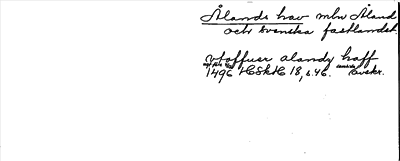 Ålands hav mbv Åland
och svenska fastlandet.
vtoffuer alandz haff
1496 HSkH 18, s. 46. avskr.